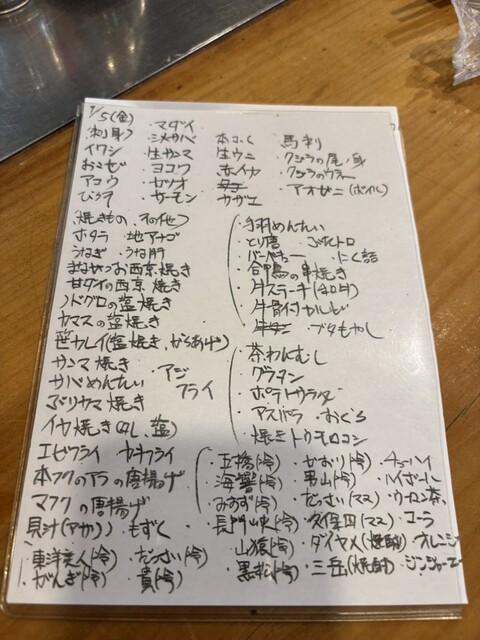 9/5(金)
(刺身)
イワシ
おこぜ
アコウ
ひらす
・マダイ
・シメサバ
・生サンマ
・ヨコワ
・カツオ
・サーモン
生ウニ
赤イカ
サザエ
馬刺
・クジラの尾ノ身
・クジラのウネ
・アオゼニ(ボイル)
(焼きもの、その他)
ホタテ ・地アナゴ
うなぎ ・うな肝
甘ダイの西京焼き
ノドグロの塩焼き
カマスの塩焼き
笹カレイ(塩焼き、からあげ)
サンマ焼き
サバめんたい
・アジフライ
ぶりカマ焼き
イカ焼き(タレ、塩)
エビフライ カキフライ
本フグのアラの唐揚げ
マフグの唐揚げ
貝汁(アカリ) ・もずく
・手羽めんたい
・合鴨の串焼き
・牛ステーキ
・牛骨付カルビ
・ブタもやし
・茶わんむし
・グラタン
・ポテトサラダ
・アスパラ ・おくら
・焼きトウモロコシ
・五橋(冷) ・かおり(冷) ・チューハイ
・海響(冷) ・男山(冷) ・ハイボール
・みすず(冷) ・だっさい(マス) ・ウーロン茶
・長門峡(冷) ・久保田(マス) ・コーラ
・山猿(冷) ・ダイヤメ(焼酎) ・オレンジ
・黒松(冷) ・三岳(焼酎) ・ジンジャーエー
・東洋美人(冷) ・だっさい(冷)
・がんぎ(冷) ・貴(冷)